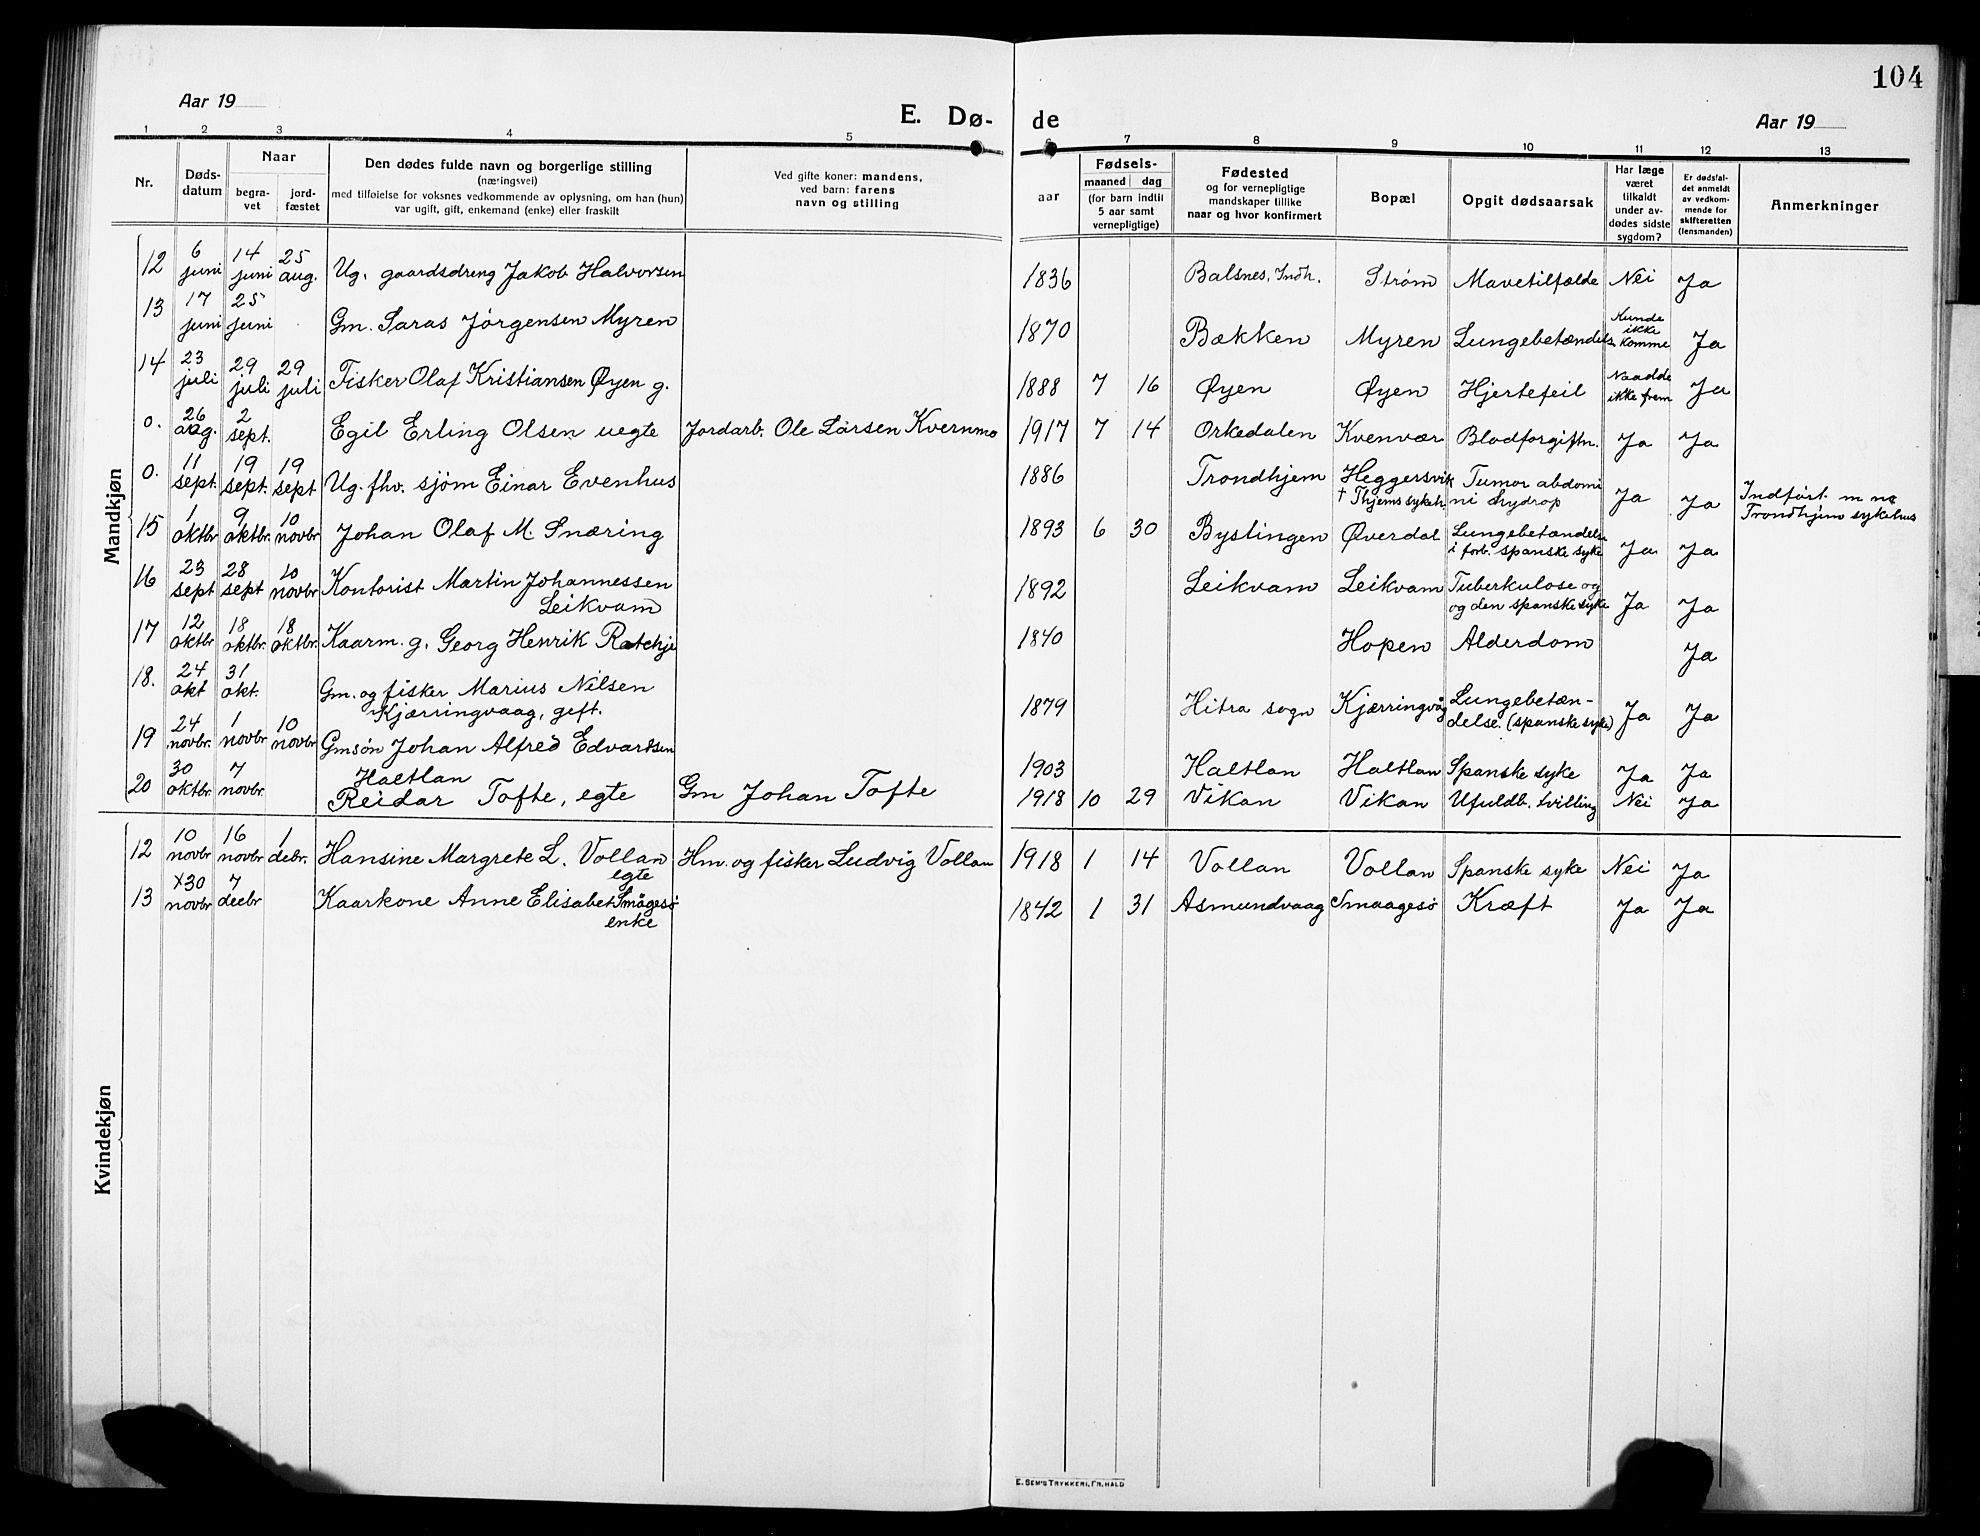 104
Aar 19
E. Dø- de
Aar 19
1 2 3 4 5 6 7 8 9 10 11 12 13
Nr.
Døds-
datum
Naar
begra-
vet
jord-
fæstet
Den dødes fulde navn og borgerlige stilling
(næringsvei)
med tilføielse for voksnes vedkommende av oplysning, om han (hun)
var ugift, gift, enkemand (enke) eller fraskilt
Ved gifte koner: mandens,
ved barn: farens
navn og stilling
Fødsels-
aar
maaned dag
(for barn indtil
5 aar samt
vernepligtige)
Fødested
og for vernepligtige
mandskaper tillike
naar og hvor konfirmert
Bopæl
Opgit dødsaarsak
Har læge
været
tilkaldt
under av-
dødes sidste
sygdom?
Er dødsfal-
det anmeldt
av vedkom-
mende for
skifteretten
(lensmanden)
Anmerkninger
Mandkjøn
12 6 juni 14 juni 25 aug. Ug. gaardsdreng Jakob Halvorsen 1836 Balsnes, Indh. Strøm Mavetilfælde Nei Ja
13 17 juni 25 juni Gm. Saras Jørgensen Myren 1870 Bækken Myren Lungebetændels. Kunde ikke komme Ja
14 23 juli 29 juli 29 juli Fisker Olaf Kristiansen Øyen g. 1888 7 16 Øyen Øyen Hjertefeil Naadde ikke frem Ja
0. 26 aug. 2 sept. Egil Erling Olsen uegte Jordarb. Ole Larsen Kvernmo 1917 7 14 Orkedalen Kvenvær Blodforgiftn. Ja Ja
0. 11 sept. 19 sept. 19 sept Ug. fhv. sjøm Einar Evenhus 1886 Trondhjem Heggersvik Tumor abdomi
† Thjems sykeh. ni hydrop Ja Ja Indført m no
Trondhjem sykehus
15 1 oktbr 9 oktbr. 10 novbr Johan Olaf M. Snæring 1893 6 30 Bystingen Øverdal Lungebetændelse
i forb. spanske syke Ja Ja
16 23 sept 28 sept 10 novbr Kontorist Martin Johannessen 1892 Leikvam Leikvam Tuberkulose og
Leikvam og den spanske syke Ja Ja
17 12 oktbr 18 oktbr. 18 oktbr. Kaarm. g. Georg Henrik Ratchje 1840 Hopen Alderdom Ja
18. 24 okt 31 okt. Gm. og fisker Marius Nilsen 1879 Hitra sogn Kjærringvåg Lungebetæn-
Kjærringvaag, gift. delse. (spanske syke) Ja Ja
19 24 novbr. 1 novbr 10 novbr Gmsøn Johan Alfred Edvardsen
Haltlan 1903 Haltlan Haltlan Spanske syke Ja Ja
20 30 oktbr 7 novbr. Reidar Tofte, egte Gm Johan Tofte 1918 10 29 Vikan Vikan Ufuldb. tvilling Nei Ja
Kvindekjøn
12 10 novbr 16 novbr 1 debr. Hansine Margrete L. Vollan Hm. og fisker Ludvig Vollan 1918 1 14 Vollan Vollan Spanske syke Nei Ja
egte
13 x30 novbr 7 decbr Kaarkone Anne Elisabet Smågesø 1842 1 31 Asmundvaag Smaagesø Kræft Ja Ja
enke
E. SEM'S TRYKKERI, FR. HALD